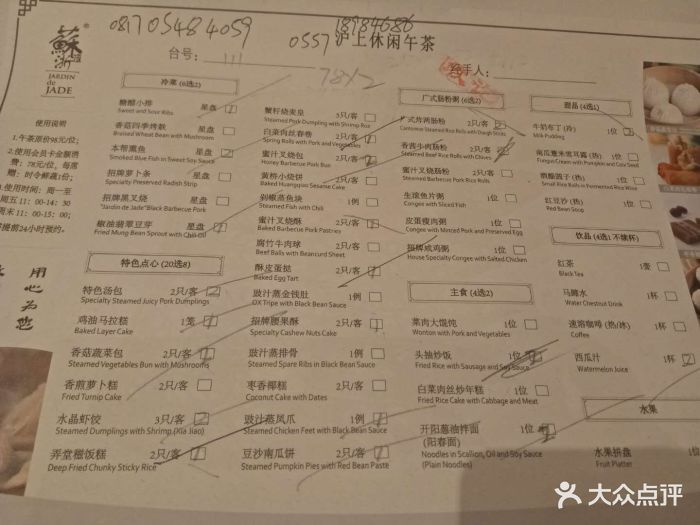 08170548 4059
18984686
0557 沪上休闲午茶
蘇浙
JARDIN
de
JADE
台号:
78x2
经手人:
使用说明
1.午茶原价98元/位;
2.使用会员卡金额消
费: 78元/位, 每席
赠: 时令鲜蔬1份;
3.使用时间: 周一至
周五 11: 00-14: 30
周末 11: 00-15: 00;
提前24小时预约。
用
心
为
您
冷菜 (6选2)
糖醋小排 星盘
Sweet and Sour Ribs
香菇四季烤麸 星盘
Braised Wheat Bean with Mushrooms
本帮熏鱼 星盘
Smoked Blue Fish in Sweet Soy Sauce
招牌萝卜条 星盘
Specialty Preserved Radish Strip
招牌黑叉烧 星盘
"Jardin de Jade" Black Barbecue Pork
椒油翡翠豆芽 星盘
Fried Mung Bean Sprout with Chili Oil
特色点心 (20选8)
特色汤包 2只/客
Specialty Steamed Juicy Pork Dumplings
鸡油马拉糕 1笼
Baked Layer Cake
香菇蔬菜包 2只/客
Steamed Vegetables Bun with Mushrooms
香煎萝卜糕 2只/客
Fried Turnip Cake
水晶虾饺 3只/客
Steamed Dumplings with Shrimp (Xia Jiao)
弄堂糍饭糕 2只/客
Deep Fried Chunky Sticky Rice
蟹籽烧麦皇 3只/客
Steamed Pork Dumpling with Shrimp Roe
白菜肉丝春卷 2只/客
Spring Rolls with Pork and Vegetables
蜜汁叉烧包 2只/客
Honey Barbecue Pork Bun
黄桥小烧饼 2只/客
Baked Huangqiao Sesame Cake
剁椒蒸鱼块 1例
Steamed Fish with Chili
蜜汁叉烧酥 2只/客
Baked Barbecue Pork Pastries
腐竹牛肉球 2只/客
Beef Balls with Beancurd Sheet
酥皮蛋挞 2只/客
Baked Egg Tart
豉汁蒸金钱肚
OX Tripe with Black Bean Sauce
招牌腰果酥 2只/客
Specialty Cashew Nuts Cake
豉汁蒸排骨 1例
Steamed Spare Ribs in Black Bean Sauce
枣香椰糕 2只/客
Coconut Cake with Dates
豉汁蒸凤爪 1例
Steamed Chicken Feet with Black Bean Sauce
豆沙南瓜饼 2只/客
Steamed Pumpkin Pies with Red Bean Paste
广式肠粉粥 (6选2)
广式炸两肠粉 2只/客
Cantonese Steamed Rice Rolls with Dough Sticks
香茜牛肉肠粉 2只/客
Steamed Beef Rice Rolls with Chives
蜜汁叉烧肠粉
Steamed Barbecue Pork Rice Rolls
生滚鱼片粥 1位
Congee with Sliced Fish
皮蛋瘦肉粥 1位
Congee with Minced Pork and Preserved Egg
招牌咸鸡粥 1位
House Specialty Congee with Salted Chicken
主食 (4选2)
菜肉大馄饨 1位
Wonton with Pork and Vegetables
头抽炒饭 1位
Fried Rice with Sausage and Soy Sauce
白菜肉丝炒年糕 1位
Fried Rice Cake with Cabbage and Meat
开阳葱油拌面 1位
(阳春面)
Noodles in Scallion, Oil and Soy Sauce
(Plain Noodles)
甜品 (4选1)
牛奶布丁(冷) 1位
Milk Pudding
南瓜薏米雪耳露(热) 1位
酒酿圆子(热) 1位
Small Rice Balls in Fermented Rice Wine
红豆沙(热) 1位
Red Bean Soup
饮品 (4选1; 不续杯)
红茶 1壶
Black Tea
马蹄水 1杯
Water Chestnut Drink
速溶咖啡 (热/冰) 1杯
Coffee
西瓜汁 1杯
Watermelon Juice
水果
水果拼盘 1位
Fruit Platter
大众点评